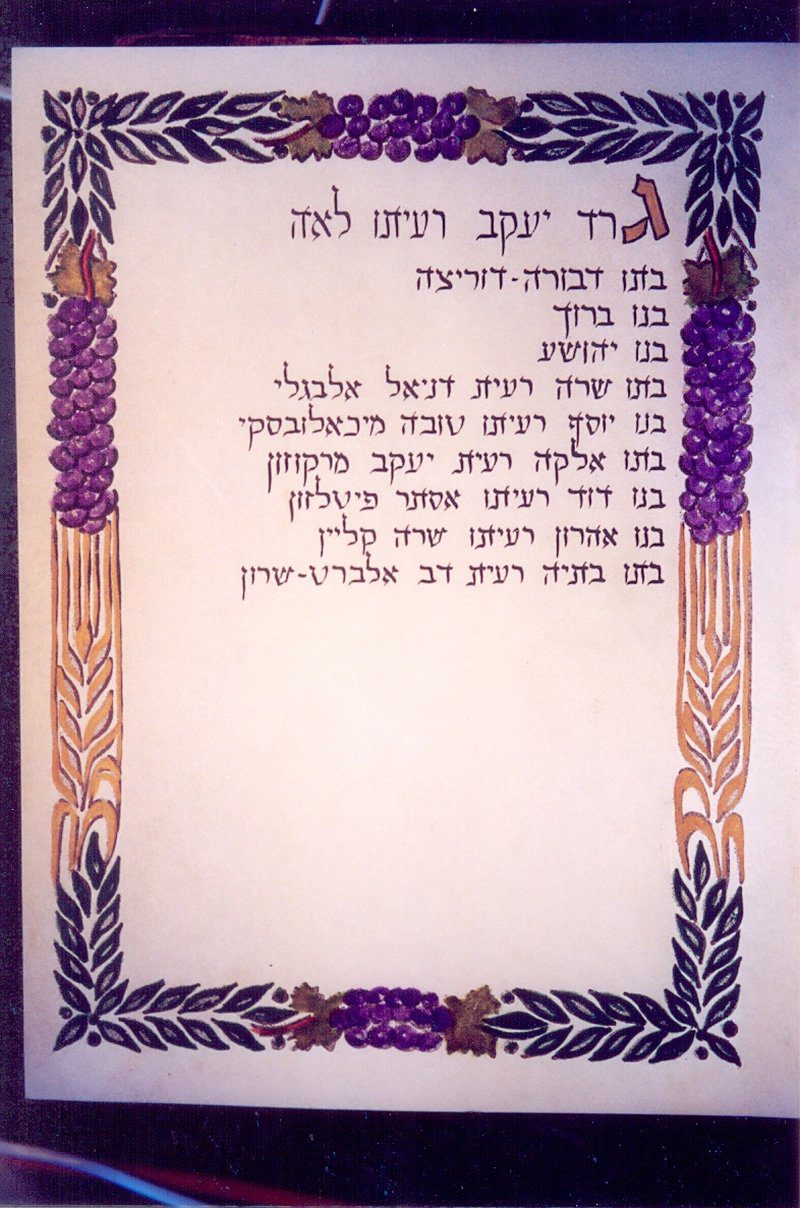 גרד יעקב רעיתו לאה
בתו דבורה-דזריצה
בנו ברוך
בנו יהושע
בתו שרה רעית דניאל אלבגלי
בנו יוסף רעיתו טובה מיכאלובסקי
בתו אלקה רעית יעקב מרקוזון
בנו דוד רעיתו אסתר פיטלזון
בנו אהרון רעיתו שרה קליין
בתו בתיה רעית דב אלברט-שרון